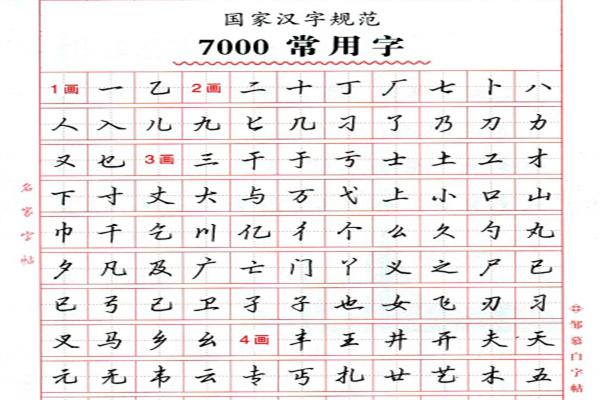 国家汉字规范
7000 常用字
1画 一 乙 2画 二 十 丁 厂 七 卜 八
人 入 儿 九 匕 几 刁 了 乃 刀 力
又 乜 3画 三 干 于 亏 士 土 工 才
下 寸 丈 大 与 万 弋 上 小 口 山
巾 千 乞 川 亿 彳 个 么 久 勺 丸
夕 凡 及 广 亡 门 丫 义 之 尸 已
巳 弓 己 卫 孑 子 也 女 飞 刃 习
叉 马 乡 幺 4画 丰 王 井 开 夫 天
元 无 韦 云 专 丐 扎 廿 艺 木 五
名家字帖
邹慕白字帖